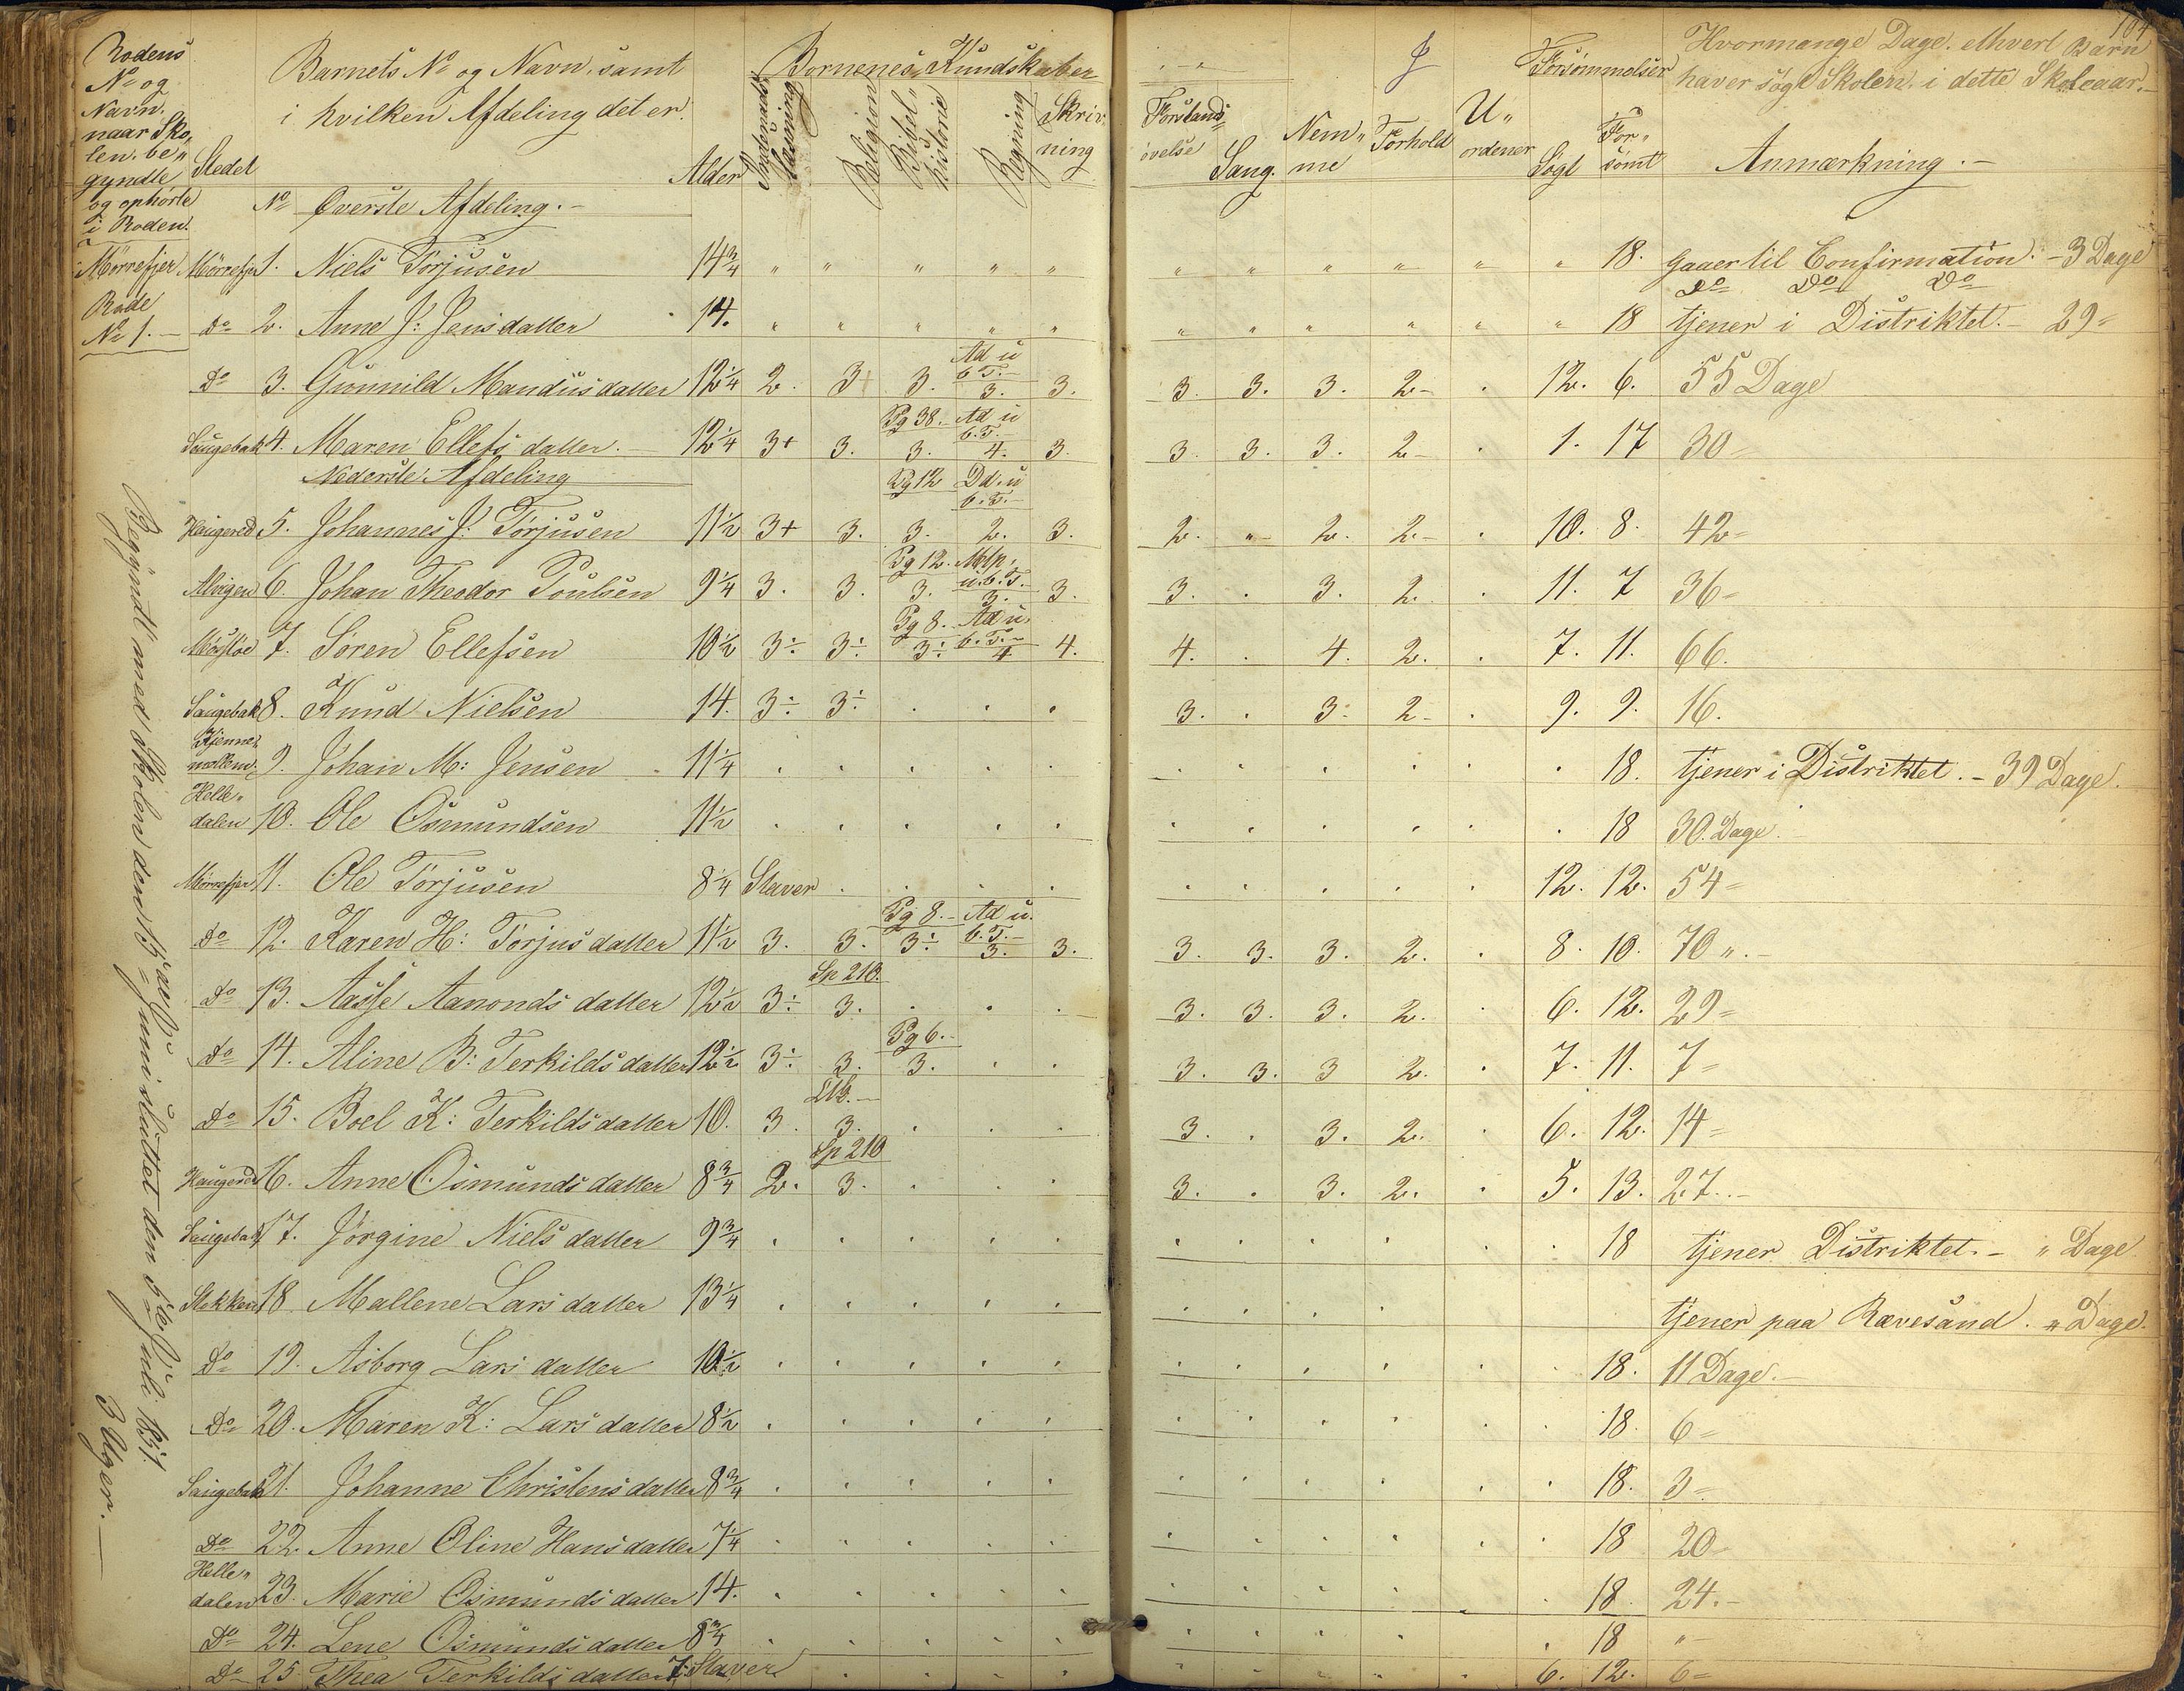 104
Rodens Barnets No og Navn, samt Børnenes Kundskaber I Forsømmelser Hvormange Dage ethvert Barn
No og i hvilken Afdeling det er. haver søgt Skolen i dette Skoleaar.
Navn,
naar Sko„
len be„
gyndte
og ophørte
i Roden.
Stedet Alder Indenads Læsning Religion Bibel„ historie Regning Skriv„ ning Forstands„ øvelse Sang. Nem„ me Forhold U„ orden Søgt For„ sømt Anmærkning.
No Øverste Afdeling.
Mørrefjer Mørrefjer 1. Niels Torjusen 14¾ „ „ „ „ „ „ „ „ „ „ „ 18. Gaaer til Confirmation. - 3 Dage
Rode Do Do Do
No 1. Do 2. Anne J: Jensdatter 14. „ „ „ „ „ „ „ „ „ „ „ 18 tjener i Distriktet. - 29 =
Do 3. Gunnild Mandusdatter 12¼ 2. 3 3. Ad u b. T. 3. 3. 3. 3. 3. 2 . 12. 6. 55 Dage
Saugebak 4. Maren Ellefsdatter. 12¼ 3+ 3. Pg 38. 3. Ad u b. T. 4. 3. 3. 3. 3. 2 . 1. 17 30 =
Nederste Afdeling
Haugered 5. Johannes J: Torjusen 11½ 3+ 3. Pg 12 3. Dd. u b. T. 2. 3. 2. „ 2. 2. . 10. 8. 42 =
6. Johan Theodor Poulsen 9¼ 3. 3. Pg 12. 3. Mlp. u. b. T. 3. 3. 3. . 3. 2. . 11. 7 36 =
7. Søren Ellefsen 10½ 3÷ 3÷ Pg 8. 3÷ Ad u. b. T. 4 4. 4. . 4. 2. . 7. 11. 66.
Saugebak 8. Knud Nielsen 14. 3÷ 3÷ . . . 3. . 3. 2 . 9. 9. 16.
9. Johan M: Jensen 11¼ . . . . . . . . . . . 18. tjener i Distriktet. - 39 Dage.
Helle„
dalen 10. Ole Osmundsen 11½ . . . . . . . . . . . 18 30. Dage.
Mørrefjer 11. Ole Torjusen 8¼ Staver . . . . . . . . . 12. 12. 54 =
Do 12. Karen H: Torjusdatter 11½ 3. 3. Pg 8. 3÷ Ad u. b. T. 3. 3. 3. 3. 3. 2. . 8. 10. 70 „.
Do 13. Aasse Aanondsdatter 12½ 3÷ Sp 210. 3. . . . 3. 3. 3. 2. . 6. 12. 29 =
Do 14. Aline B: Terkildsdatter 12½ 3÷ 3. Pg 6. 3. . . 3. 3. 3 2. . 7. 11. 7 =
Do 15. Boel K: Terkildsdatter 10. 3. 3. . . . 3. . 3. 2. . 6. 12. 14 =
Haugered 16. Anne Osmundsdatter 8¾ 2. Sp 210 3. . . . 3. . 3. 2. . 5. 13. 27.
Saugebak 17. Jørgine Nielsdatter 9¾ . . . . . . . . . . . 18 tjener Distriktet. - „ Dage
Stekken 18 Mallene Larsdatter 13¼ . . . . . . . . . tjener paa Rævesand. „ Dage.
Do 19. Asborg Larsdatter 10½ . . . . . . . . . . . 18. 11 Dage.
Do 20. Maren K: Larsdatter 8½ . . . . . . . . . . . 18. 6 =
Saugebak 21. Johanne Christensdatter 8¾ . . . . . . . . . . . 18. 3 =
Do 22. Anne Oline Hansdatter 7¼ . . . . . . . . . . . 18 20
Helle„
dalen 23. Marie Osmundsdatter 14. . . . . . . . . . . . 18. 24.
Do 24. Lene Osmundsdatter 8¾ . . . . . . . . . . . 18 „
Do 25. Thea Terkildsdatter 7. Staver . . . . . . . . . 6. 12. 6 =
Begyndt med Skolen den 15de Juni sluttet den 5te Juli 1857.
3 Uger.